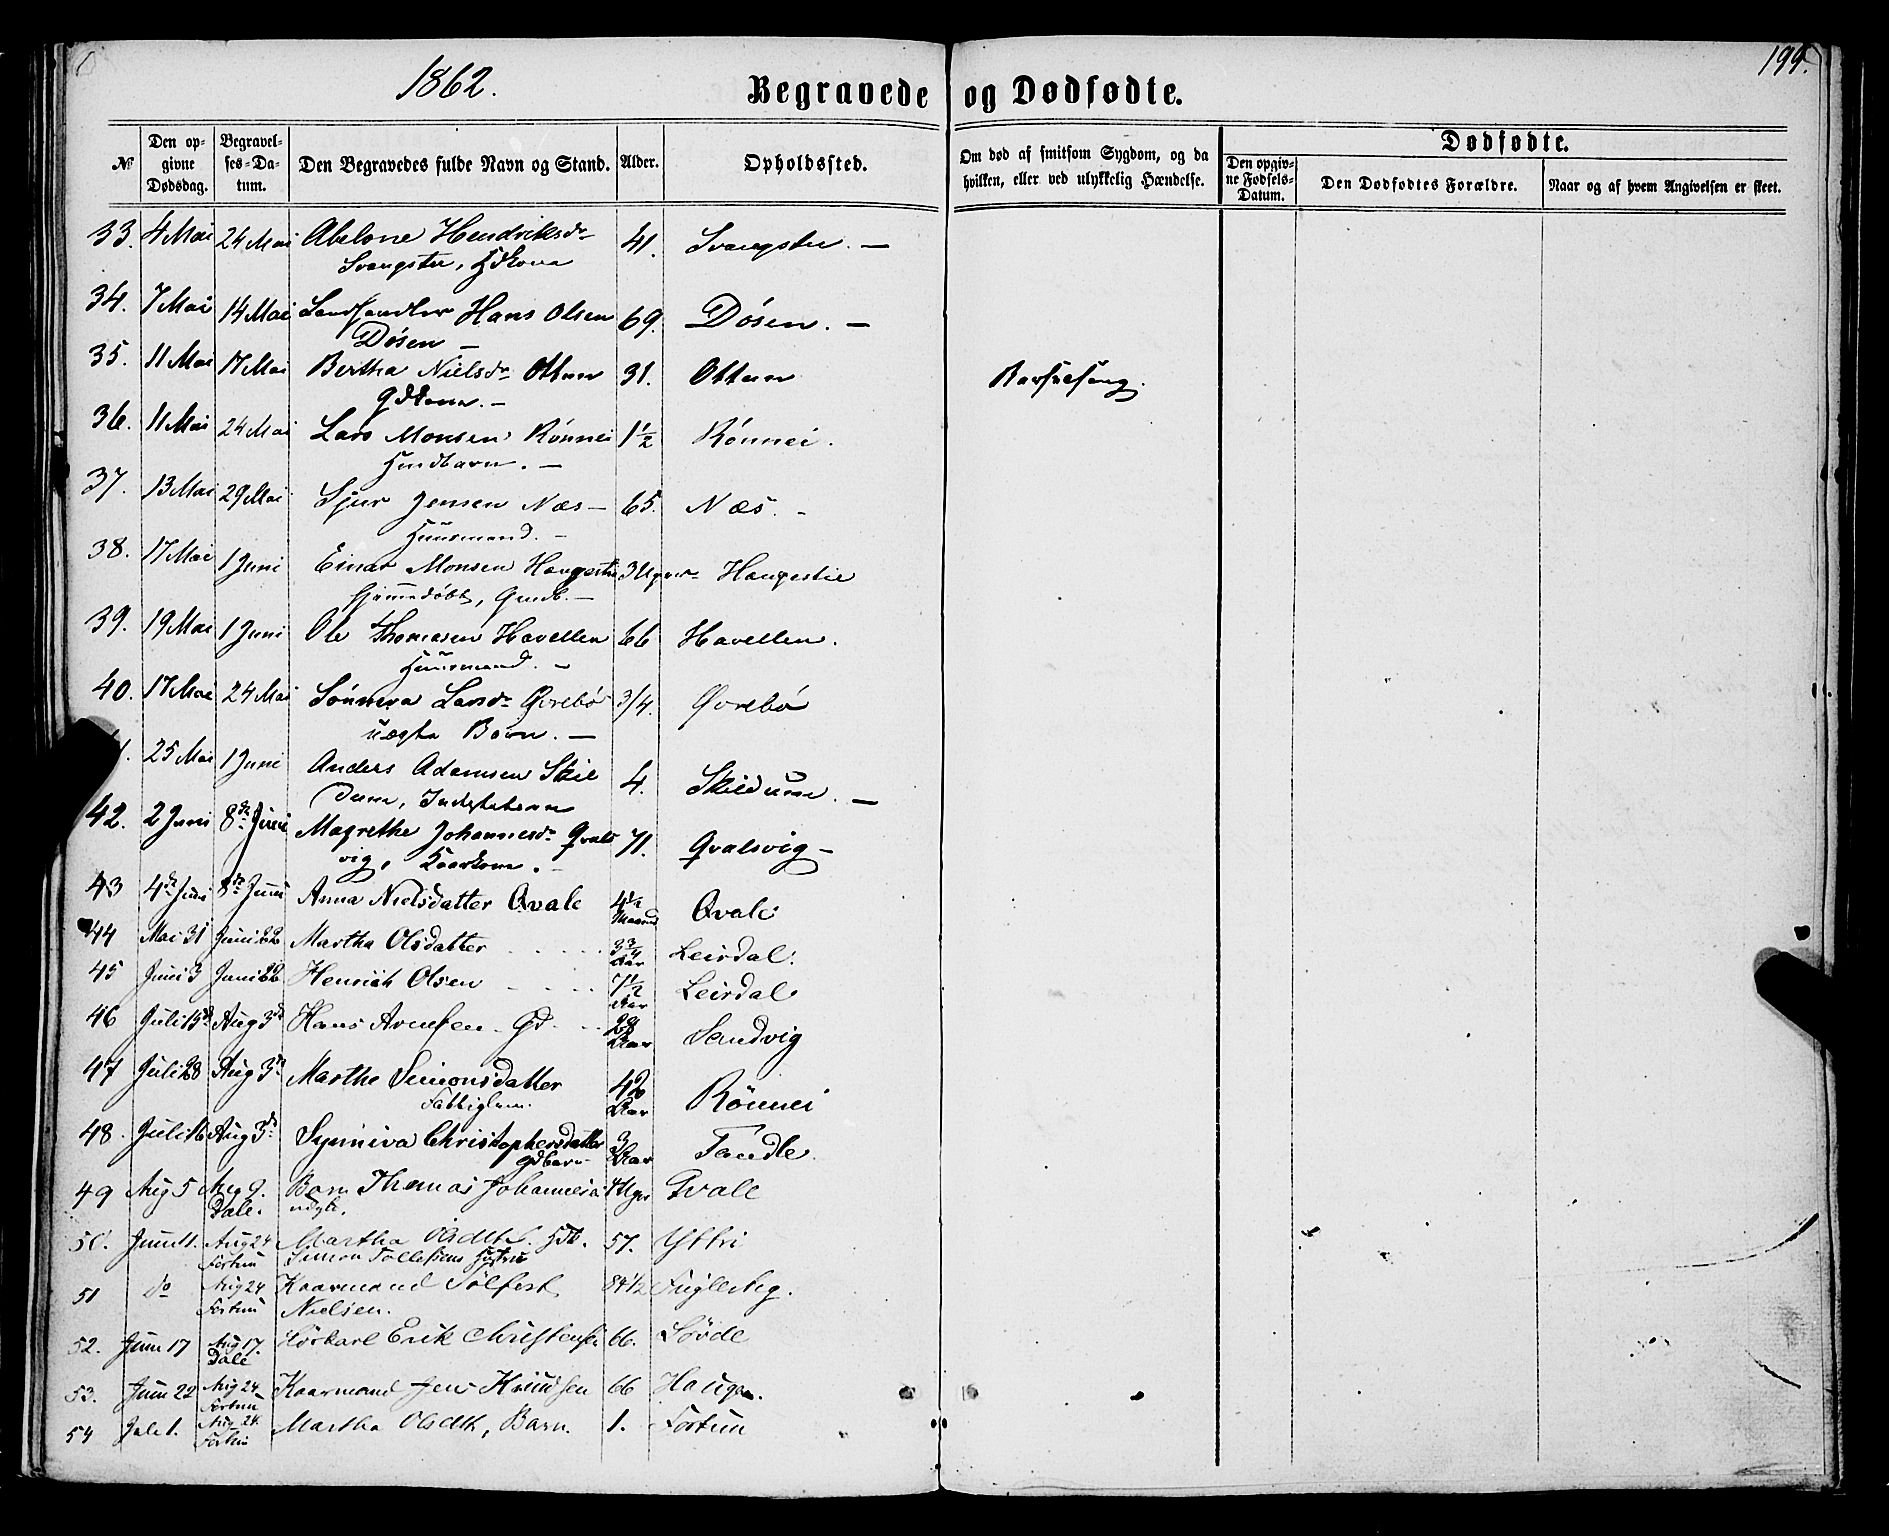 1862.
Begravede og Dødfødte.
199.
№
Den opgivne Dødsdag.
Begravelses-Datum.
Den Begravedes fulde Navn og Stand.
Alder.
Opholdssted.
Om død af smitsom Sygdom, og da hvilken, eller ved ulykkelig Hændelse.
Dødfødte.
Den opgivne Fødsels-Datum.
Den Dødfødtes Forældre.
Naar og af hvem Angivelsen er skeet.
33. 4 Mai 24 Mai Abelone Hendriksdr 41. Svangstu. —
Svangstu, Hdkona
34. 7 Mai 14 Mai Landhandler Hans Olsen 69. Døsen. —
Døsen —
35. 11 Mai 17 Mai Bertha Nielsdr Ottum 31. Ottum Barselseng.
Gdkona. —
36. 11 Mai 24 Mai Lars Monsen Rønnei 1½ Rønnei.
Huusbarn. —
37. 13 Mai 29 Mai Sjur Jensen Næs — 65. Næs. -
Huusmand. —
38. 17 Mai 1 Juni Einar Monsen Haugestie 3 Uger Haugestie
Hjemmedøbt, Gmdb. —
39. 19 Mai 1 Juni Ole Thomasen Havellen 66 Havellen.
Huusmand. —
40. 17 Mai 24 Mai Sønneva Larsdr Øvrebø 3/4. Øvrebø
uægte Barn. —
25 Mai 1 Juni Anders Adamsen Skil 4. Skildum. —
dum,
42. 2 Juni 8de Juni Magrethe Johannesdr Qvals 71. Qvalsvig —
vig, Kaarkona. —
43 4de Juni 8de Juni Anna Nielsdatter Qvale 4½ Maaned Qvale
44 Mai 31 Juni 22 Martha Olsdatter 3¾ Aar Leirdal.
45 Juni 3 Juni 22 Henrich Olsen 7½ Aar Leirdal
46 Juli 13de Aug 3de Hans Gd. 28 Aar Sandvig
47 Juli 28 Aug 3de Marthe Simonsdatter 42 Aar Rönnei
Fattiglem.
48. Juli 16 Aug 3de Synneva Christophersdatter 3 Aar Tandle.
Gdbarn
49 Aug 5 Aug 9. Dale. Barn Thomas Johannes 4 Uger Qvale
uægte.
50. Juni 11. Aug 24 Fortun Martha Olsdtr. 57. Yttri
Simon Tollefsens Hustru
51 do Aug 24 Fortun Kaarmand Tolfest 84 1/2 Fuglesteg.
Nielsen.
52. Juni 17 Aug 17. Dale Erik Christensen 66. Løvde
53. Juni 22 Aug 24 Fortun Kaarmand Jens Knudsen 66 Haugen.
54 Juli 1. Aug 24. Fortun Martha Olsdtr, Barn. 1. Fortun